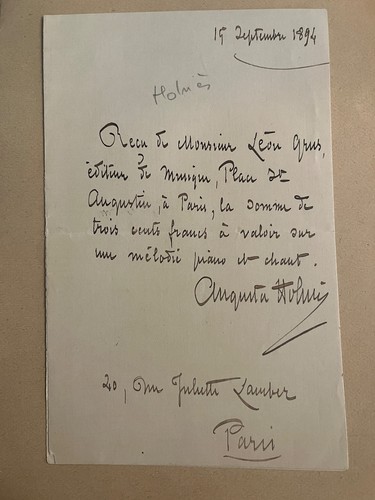 15 Septembre 1894
Holmès
Reçu de Monsieur Léon Grus,
éditeur de musique, Place St
Augustin, à Paris, la somme de
trois cents francs à valoir sur
une mélodie piano et chant.
Augusta Holmès
20, rue Juliette Lamber
Paris